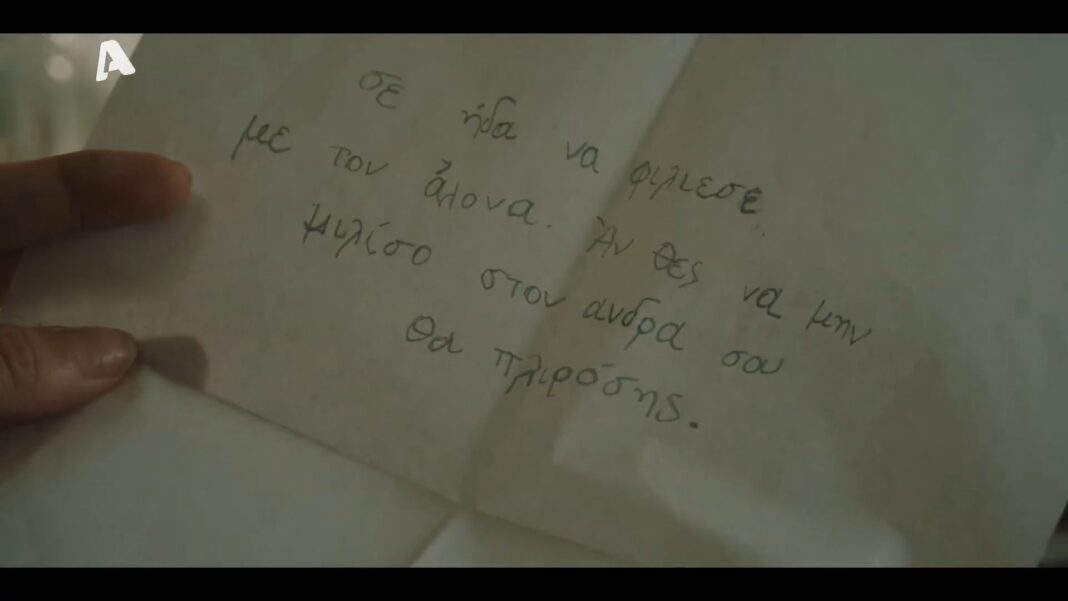 A
σε ήδα να φιλιεσε
με τον άλονα. Ἀν θες να μην
μιλίσο στον ανδρα σου
θα πλιρόσης.